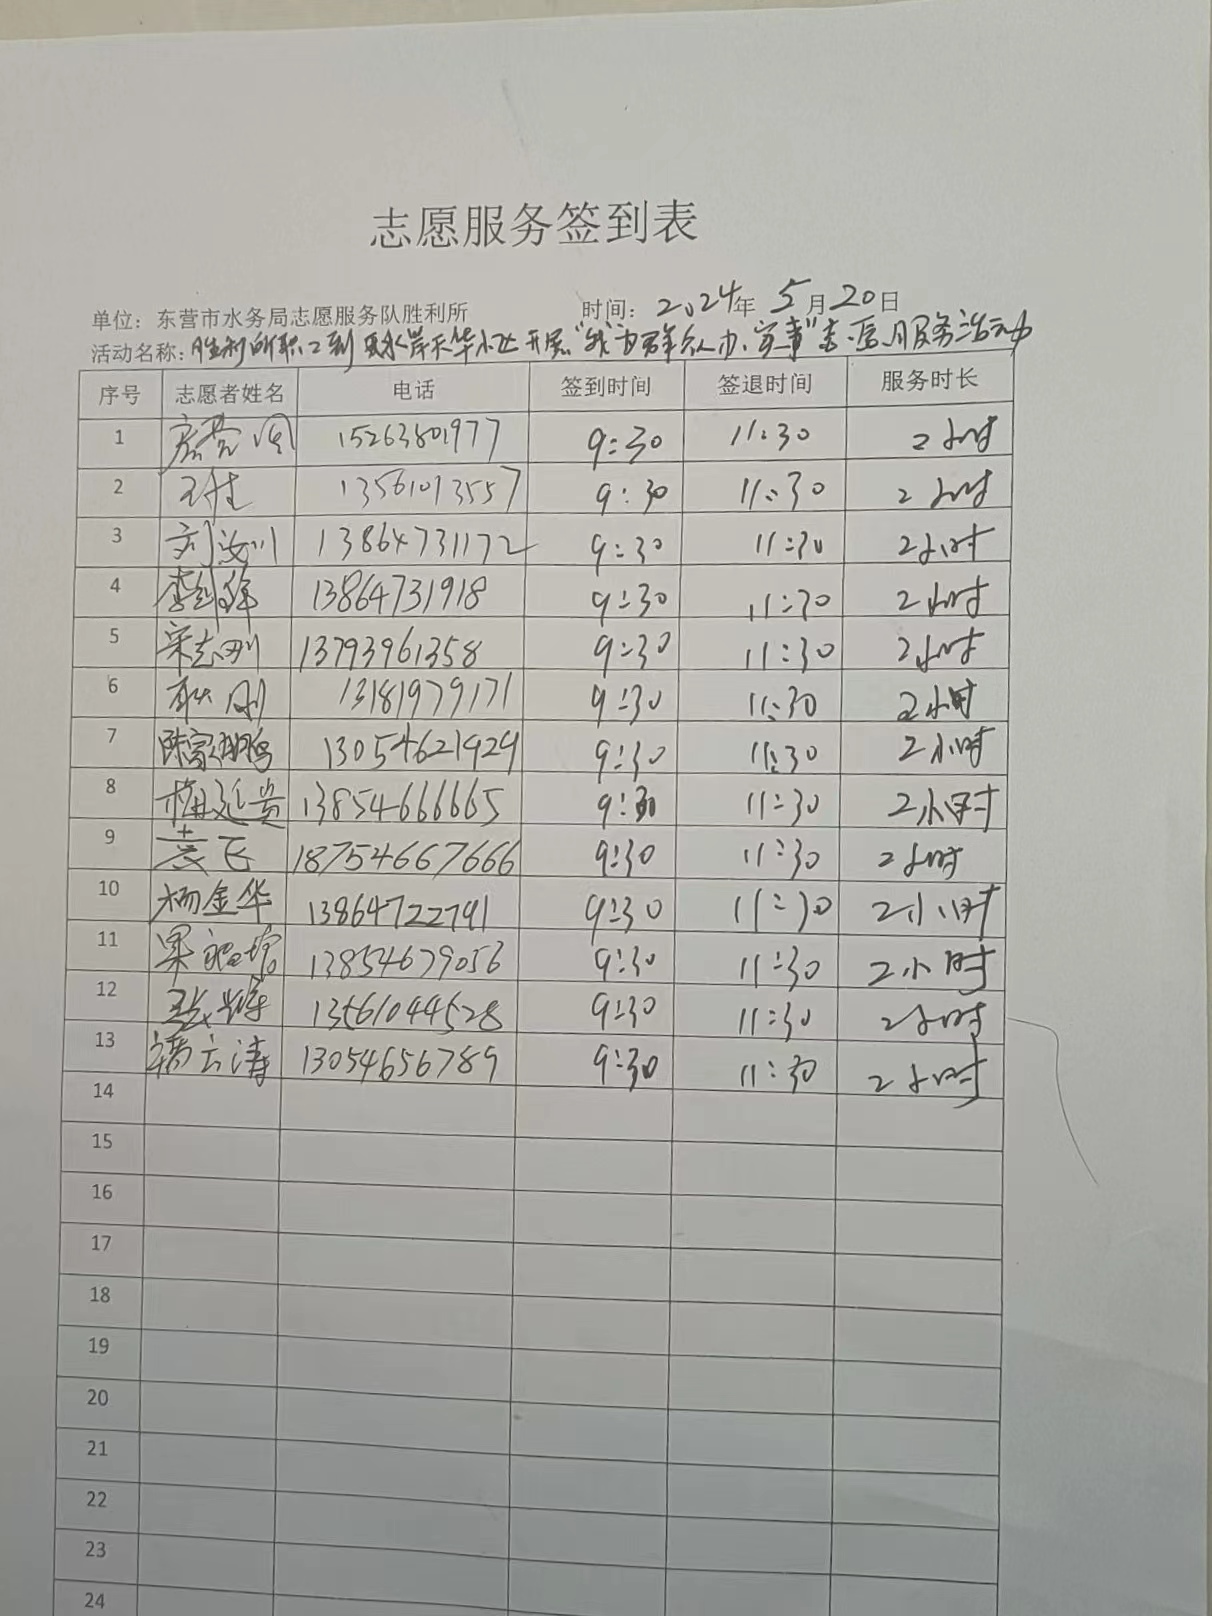 志愿服务签到表
单位：东营市水务局志愿服务队胜利所 时间：2024年 5月20日
活动名称：胜利所职工到 水岸天华小区开展"我为群众办实事"志愿服务活动
序号 志愿者姓名 电话 签到时间 签退时间 服务时长
1 15263801977 9:30 11:30 2小时
2 13561013557 9:30 11:30 2小时
3 刘汝川 13864731172 9:30 11:30 2小时
4 13864731918 9:30 11:30 2小时
5 宋志刚 13793961358 9:30 11:30 2小时
6 耿刚 13181979171 9:30 11:30 2小时
7 陈家翔 13054621929 9:30 11:30 2小时
8 梅延贵 13854666665 9:30 11:30 2小时
9 袁飞 18754667666 9:30 11:30 2小时
10 杨金华 13864722791 9:30 11:30 2小时
11 13854679056 9:30 11:30 2小时
12 13561044528 9:30 11:30 2小时
13 云涛 13054656789 9:30 11:30 2小时
14
15
16
17
18
19
20
21
22
23
24